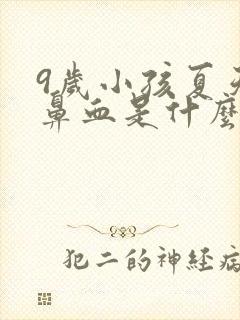 9歲小孩夏天
鼻血是什麼
犯二的神经病